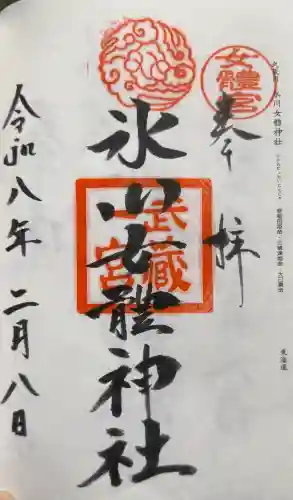 武蔵国 氷川女體神社
女體宮
奉拝
氷川女體神社
武蔵
一宮
令和八年二月八日